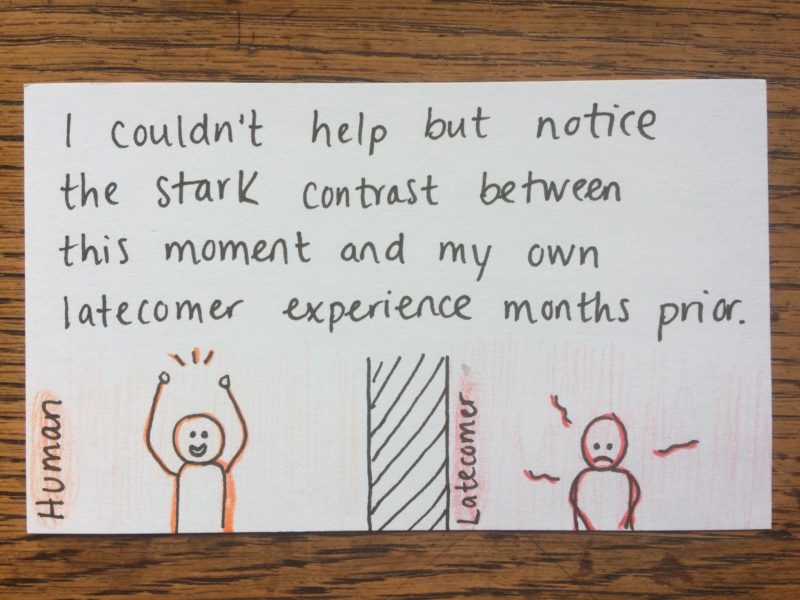 I couldn't help but notice
the stark contrast between
this moment and my own
latecomer experience months prior.
Human
Latecomer